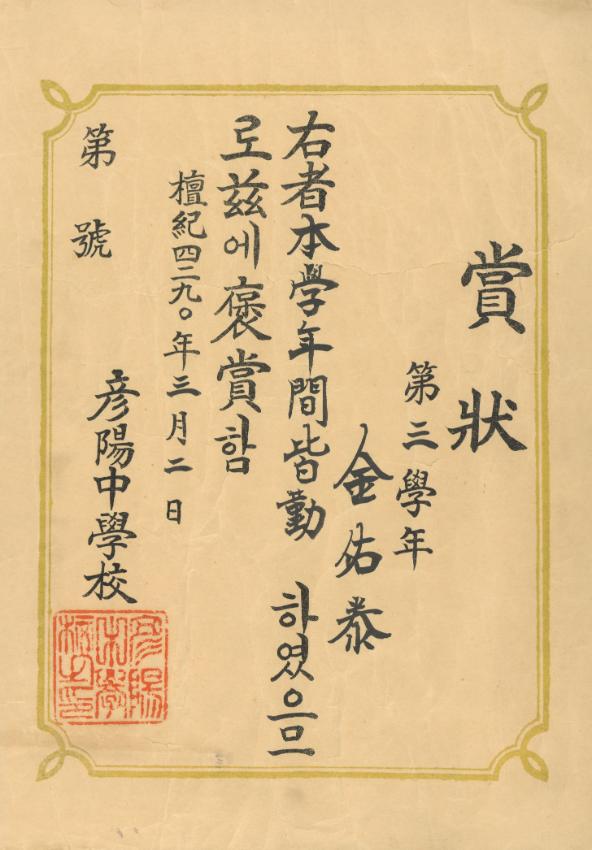 賞狀
第三學年
金佑泰
右者本學年間皆勤 하였으므
로玆에褒賞함
檀紀四二九〇年三月二日
第 號
彦陽中學校
彦陽中學校之印